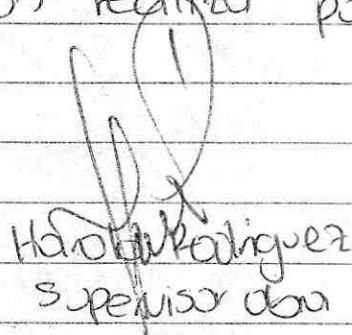 realizar
Harold Rodriguez
Supervisor obra